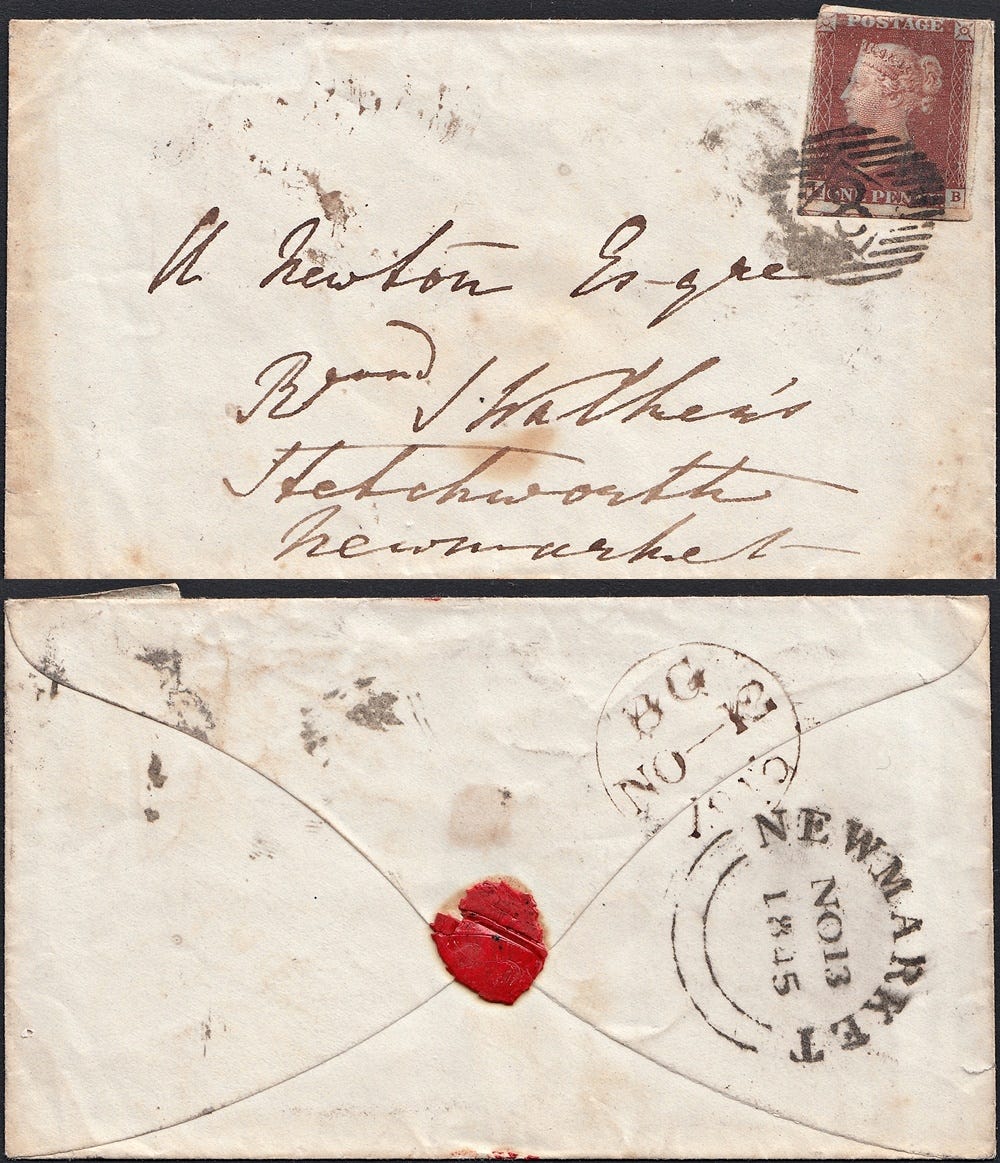 POSTAGE
ONE PENNY
B
A Newton Esqre
Revd J. Walker's
Stetchworth
Newmarket
BG
NO-12
1845
NEWMARKET
NO13
1845